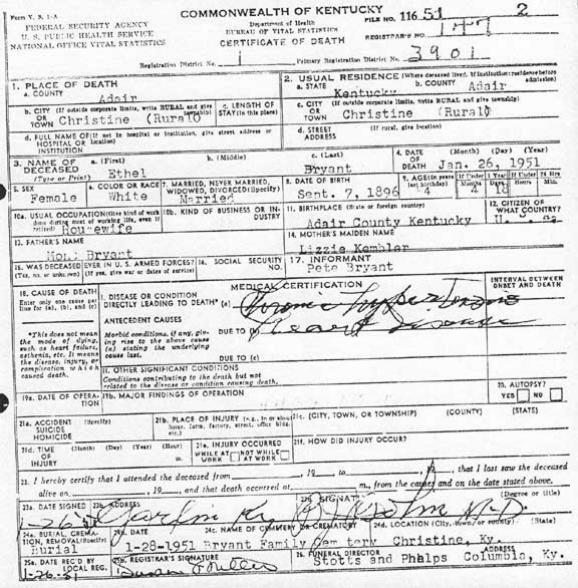 Form V. S. 1-A
COMMONWEALTH OF KENTUCKY
FILE NO. 116 51 2
FEDERAL SECURITY AGENCY
U. S. PUBLIC HEALTH SERVICE
NATIONAL OFFICE VITAL STATISTICS
Department of Health
BUREAU OF VITAL STATISTICS
CERTIFICATE OF DEATH
REGISTRAR'S NO. 147
Registration District No. 1 Primary Registration District No. 3901
1. PLACE OF DEATH
a. COUNTY Adair
2. USUAL RESIDENCE (Where deceased lived. If institution: residence before admission)
a. STATE Kentucky b. COUNTY Adair
b. CITY (If outside corporate limits, write RURAL and give township)
OR TOWN Christine (Rural)
c. LENGTH OF STAY (in this place)
c. CITY (If outside corporate limits, write RURAL and give township)
OR TOWN Christine (Rural)
d. FULL NAME OF (If not in hospital or institution, give street address or location)
HOSPITAL OR INSTITUTION
d. STREET ADDRESS (If rural, give location)
3. NAME OF DECEASED (Type or Print)
a. (First) Ethel
b. (Middle)
c. (Last) Bryant
4. DATE OF DEATH (Month) (Day) (Year) Jan. 26, 1951
5. SEX Female
6. COLOR OR RACE White
7. MARRIED, NEVER MARRIED, WIDOWED, DIVORCED (Specify) Married
8. DATE OF BIRTH Sept. 7, 1896
9. AGE (In years last birthday) If Under 1 Year Months Days If Under 24 Hrs Hours Min.
10a. USUAL OCCUPATION (Give kind of work done during most of working life, even if retired) Housewife
10b. KIND OF BUSINESS OR INDUSTRY
11. BIRTHPLACE (State or foreign country) Adair County Kentucky
12. CITIZEN OF WHAT COUNTRY?
13. FATHER'S NAME
Bryant
14. MOTHER'S MAIDEN NAME
Lizzie Kembler
15. WAS DECEASED EVER IN U. S. ARMED FORCES?
(Yes, no, or unknown) (If yes, give war or dates of service)
16. SOCIAL SECURITY NO.
17. INFORMANT
Pete Bryant
18. CAUSE OF DEATH
Enter only one cause per line for (a), (b), and (c)
MEDICAL CERTIFICATION
INTERVAL BETWEEN ONSET AND DEATH
I. DISEASE OR CONDITION DIRECTLY LEADING TO DEATH* (a)
*This does not mean the mode of dying, such as heart failure, asthenia, etc. It means the disease, injury, or complication which caused death.
ANTECEDENT CAUSES
Morbid conditions, if any, giving rise to the above cause (a) stating the underlying cause last.
DUE TO (b) Heart Disease
DUE TO (c)
II. OTHER SIGNIFICANT CONDITIONS
Conditions contributing to the death but not related to the disease or condition causing death.
19a. DATE OF OPERATION
19b. MAJOR FINDINGS OF OPERATION
20. AUTOPSY?
YES NO
21a. ACCIDENT SUICIDE HOMICIDE (Specify)
21b. PLACE OF INJURY (e.g., in or about home, farm, factory, street, office bldg., etc.)
21c. (CITY, TOWN, OR TOWNSHIP) (COUNTY) (STATE)
21d. TIME OF INJURY (Month) (Day) (Year) (Hour) m.
21e. INJURY OCCURRED
WHILE AT WORK NOT WHILE AT WORK
21f. HOW DID INJURY OCCUR?
22. I hereby certify that I attended the deceased from , 19 to , 19 , that I last saw the deceased
alive on , 19 and that death occurred at m., from the causes and on the date stated above.
23a. DATE SIGNED 1-26-51
23b. ADDRESS
23c. SIGNATURE (Degree or title) M.D.
24a. BURIAL, CREMATION, REMOVAL (Specify) Burial
24b. DATE 1-28-1951
24c. NAME OF CEMETERY OR CREMATORY Bryant Family Cemetery
24d. LOCATION (City, town, or county) (State) Christine, Ky.
25a. DATE REC'D BY LOCAL REG. 1-26-51
25b. REGISTRAR'S SIGNATURE
26. FUNERAL DIRECTOR ADDRESS
Stotts and Phelps Columbia, Ky.